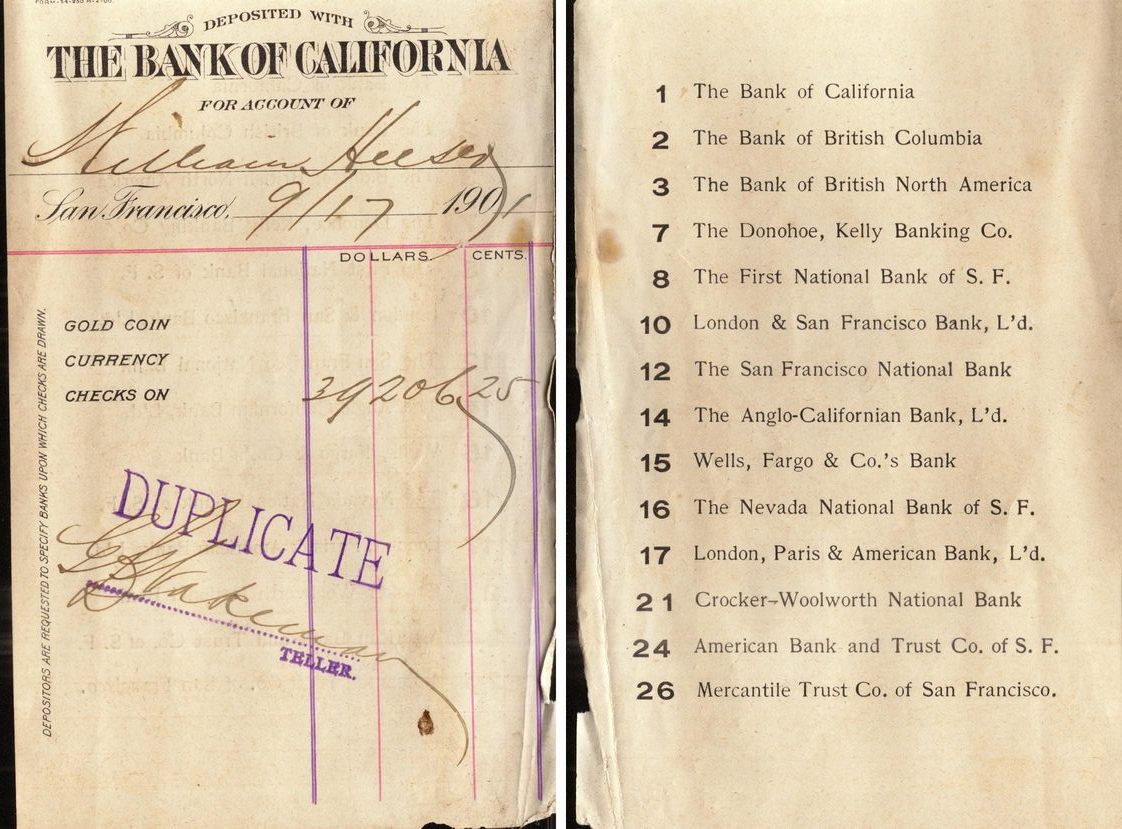 DEPOSITED WITH
THE BANK OF CALIFORNIA
FOR ACCOUNT OF
William Heeser
San Francisco, 9/17 1901
DOLLARS. CENTS.
GOLD COIN
CURRENCY
CHECKS ON 39206 25
DEPOSITORS ARE REQUESTED TO SPECIFY BANKS UPON WHICH CHECKS ARE DRAWN.
DUPLICATE
Wakeman
TELLER.
1 The Bank of California
2 The Bank of British Columbia
3 The Bank of British North America
7 The Donohoe, Kelly Banking Co.
8 The First National Bank of S. F.
10 London & San Francisco Bank, L'd.
12 The San Francisco National Bank
14 The Anglo-Californian Bank, L'd.
15 Wells, Fargo & Co.'s Bank
16 The Nevada National Bank of S. F.
17 London, Paris & American Bank, L'd.
21 Crocker-Woolworth National Bank
24 American Bank and Trust Co. of S. F.
26 Mercantile Trust Co. of San Francisco.